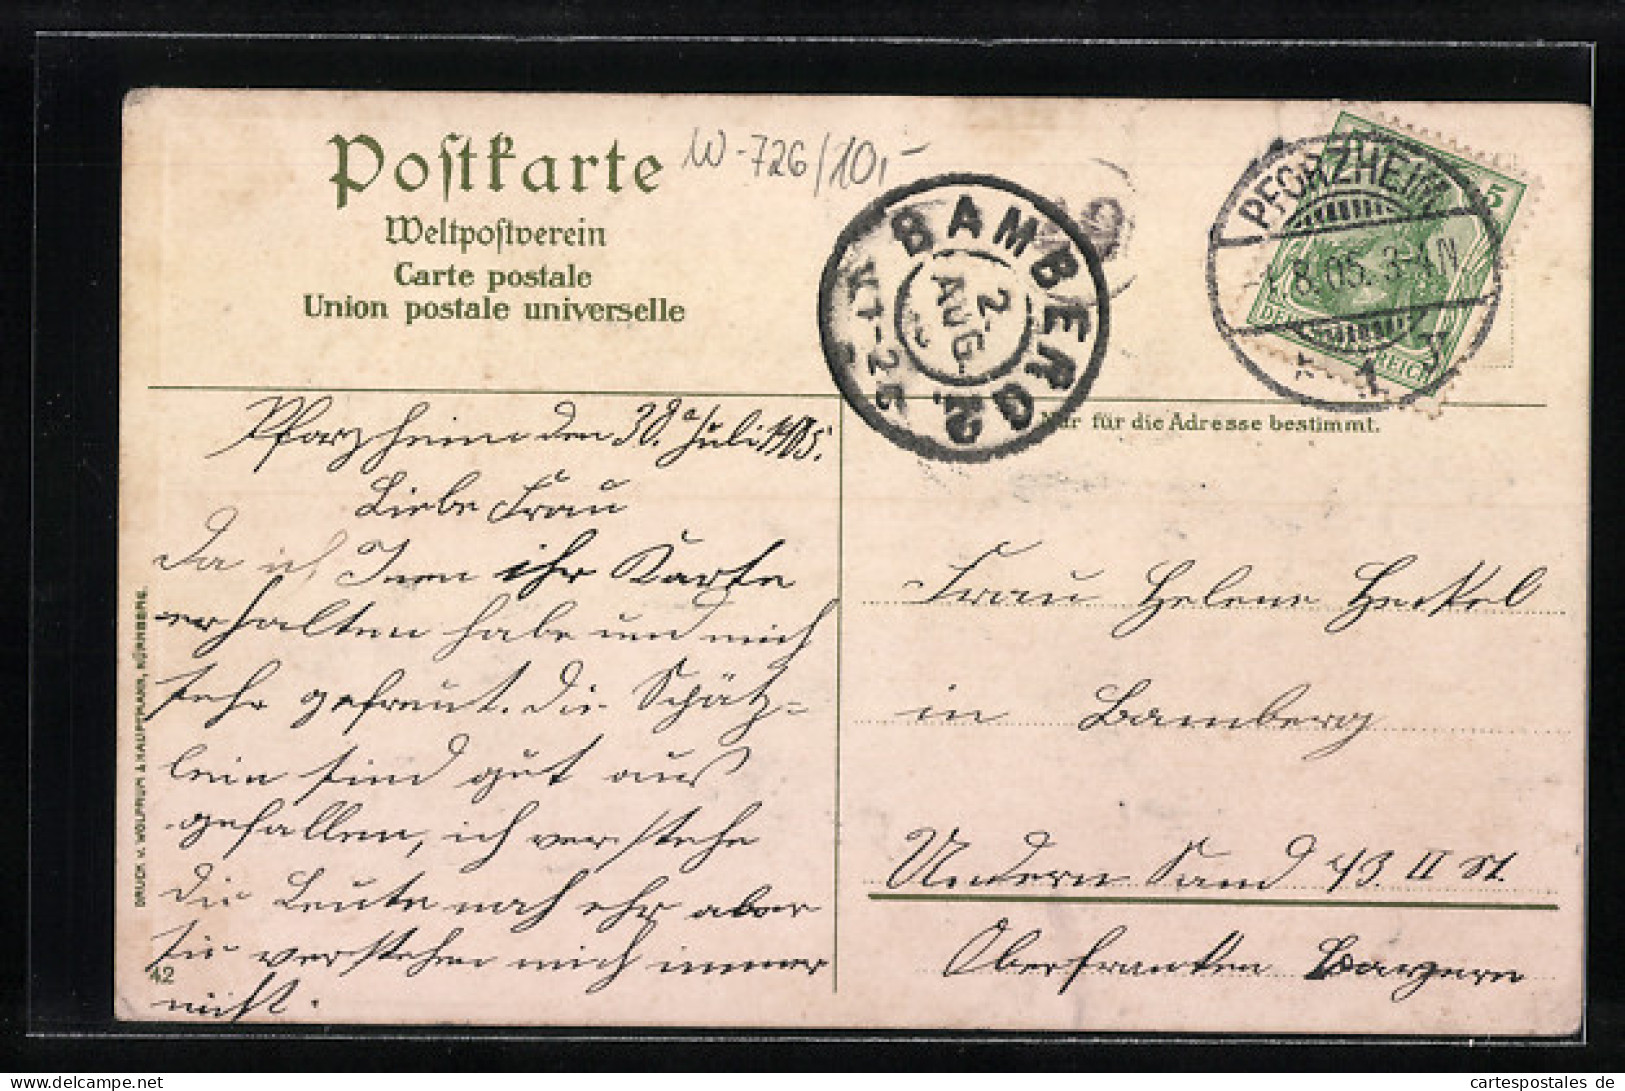 Postkarte
W-726/10,-
Weltpostverein
Carte postale
Union postale universelle
BAMBERG 2.
2. AUG.
PFORZHEIM
8.05. 3-4N
5
DEUTSCHES REICH
Nur für die Adresse bestimmt.
Pforzheim den 30. Juli 1905.
Liebe Frau
Da ich Inen ihr Karte
erhalten habe und mich
sehr gefreut. Die Schätz=
lein sind gut aus
gefallen, ich verstehe
die Leute noch ehr aber
sie verstehen mich immer
nicht.
Frau Helene Heckel
in Bamberg
Undern Sand 43 II St.
Oberfranken Bayern
DRUCK v. WOLFRUM & HAUPTMANN, NÜRNBERG.
42
cartespostales de